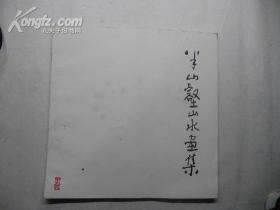 半山壑山水画集
KONGFZ.COM
孔夫子旧书网